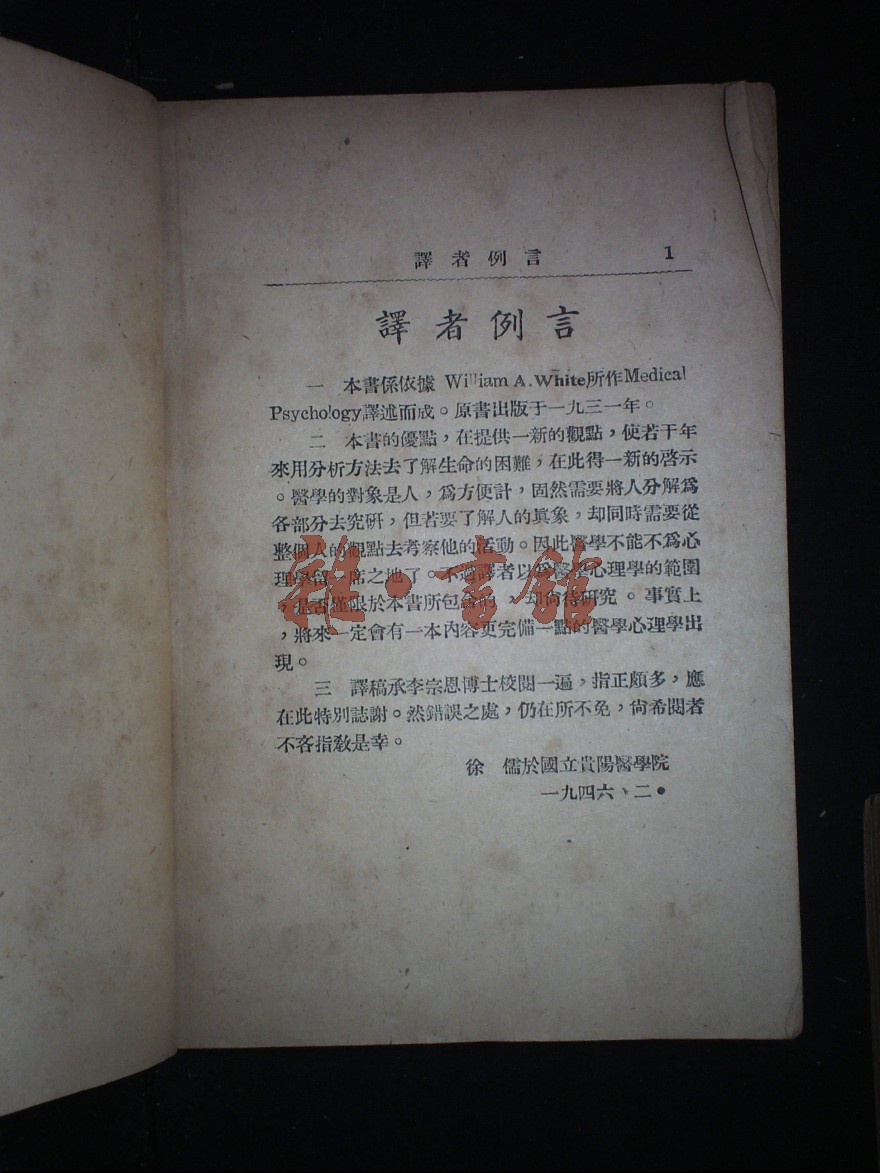 譯者例言 1
譯者例言
一 本書係依據 William A. White所作Medical
Psychology譯述而成。原書出版于一九三一年。
二 本書的優點，在提供一新的觀點，使若干年
來用分析方法去了解生命的困難，在此得一新的啓示
。醫學的對象是人，爲方便計，固然需要將人分解爲
各部分去究硏，但若要了解人的眞象，却同時需要從
整個人的觀點去考察他的活動。因此醫學不能不爲心
理學留一席之地了。不過譯者以爲醫學心理學的範圍
，是否僅限於本書所包含的，却尙待硏究。事實上
，將來一定會有一本內容更完備一點的醫學心理學出
現。
三 譯稿承李宗恩博士校閱一遍，指正頗多，應
在此特別誌謝。然錯誤之處，仍在所不免，尙希閱者
不吝指敎是幸。
徐 儒於國立貴陽醫學院
一九四六、二•
雜·書館